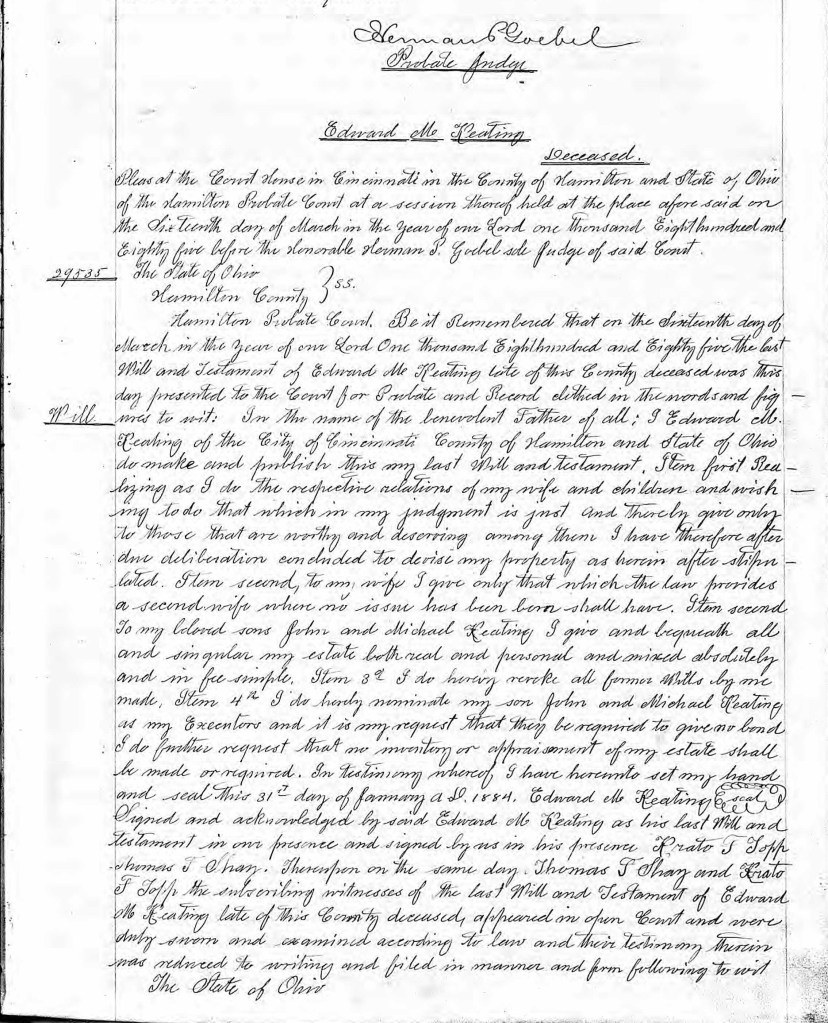 Herman P Goebel
Probate Judge
Edward M Keating
Deceased.
Pleas at the Court House in Cincinnati in the County of Hamilton and State of Ohio
of the Hamilton Probate Court at a session thereof held at the place afore said on
the Sixteenth day of March in the Year of our Lord one thousand Eight hundred and
Eighty five before the Honorable Herman P. Goebel sole Judge of said Court.
29535 The State of Ohio
Hamilton County } S.S.
Hamilton Probate Court. Be it Remembered that on the Sixteenth day of
March in the Year of our Lord One thousand Eight hundred and Eighty five the last
Will and Testament of Edward M Keating late of this County deceased was this
day presented to the Court for Probate and Record clothed in the words and fig-
Will ures to wit: In the name of the benevolent Father of all; I Edward M.
Keating of the City of Cincinnati County of Hamilton and State of Ohio
do make and publish this my last Will and testament. Item first Rea-
lizing as I do the respective relations of my wife and children and wish-
ing to do that which in my judgment is just and thereby give only
to those that are worthy and deserving among them I have therefore after
due deliberation concluded to devise my property as herein after stipu-
lated. Item second, to my wife I give only that which the law provides
a second wife where no issue has been born shall have. Item second
To my beloved sons John and Michael Keating I give and bequeath all
and singular my estate both real and personal and mixed absolutely
and in fee simple. Item 3rd I do hereby revoke all former Wills by me
made. Item 4th I do hereby nominate my son John and Michael Keating
as my Executors and it is my request that they be required to give no bond
I do further request that no inventory or appraisment of my estate shall
be made or required. In testimony whereof I have hereunto set my hand
and seal this 31st day of January A D. 1884. Edward M Keating seal
Signed and acknowledged by said Edward M Keating as his last Will and
testament in our presence and signed by us in his presence Krato T Topp
Thomas F Shay. Thereupon on the same day Thomas F Shay and Krato
F Topp the subscribing witnesses of the last Will and Testament of Edward
M Keating late of this County deceased, appeared in open Court and were
duly sworn and examined according to law and their testimony therein
was reduced to writing and filed in manner and form following to wit
The State of Ohio